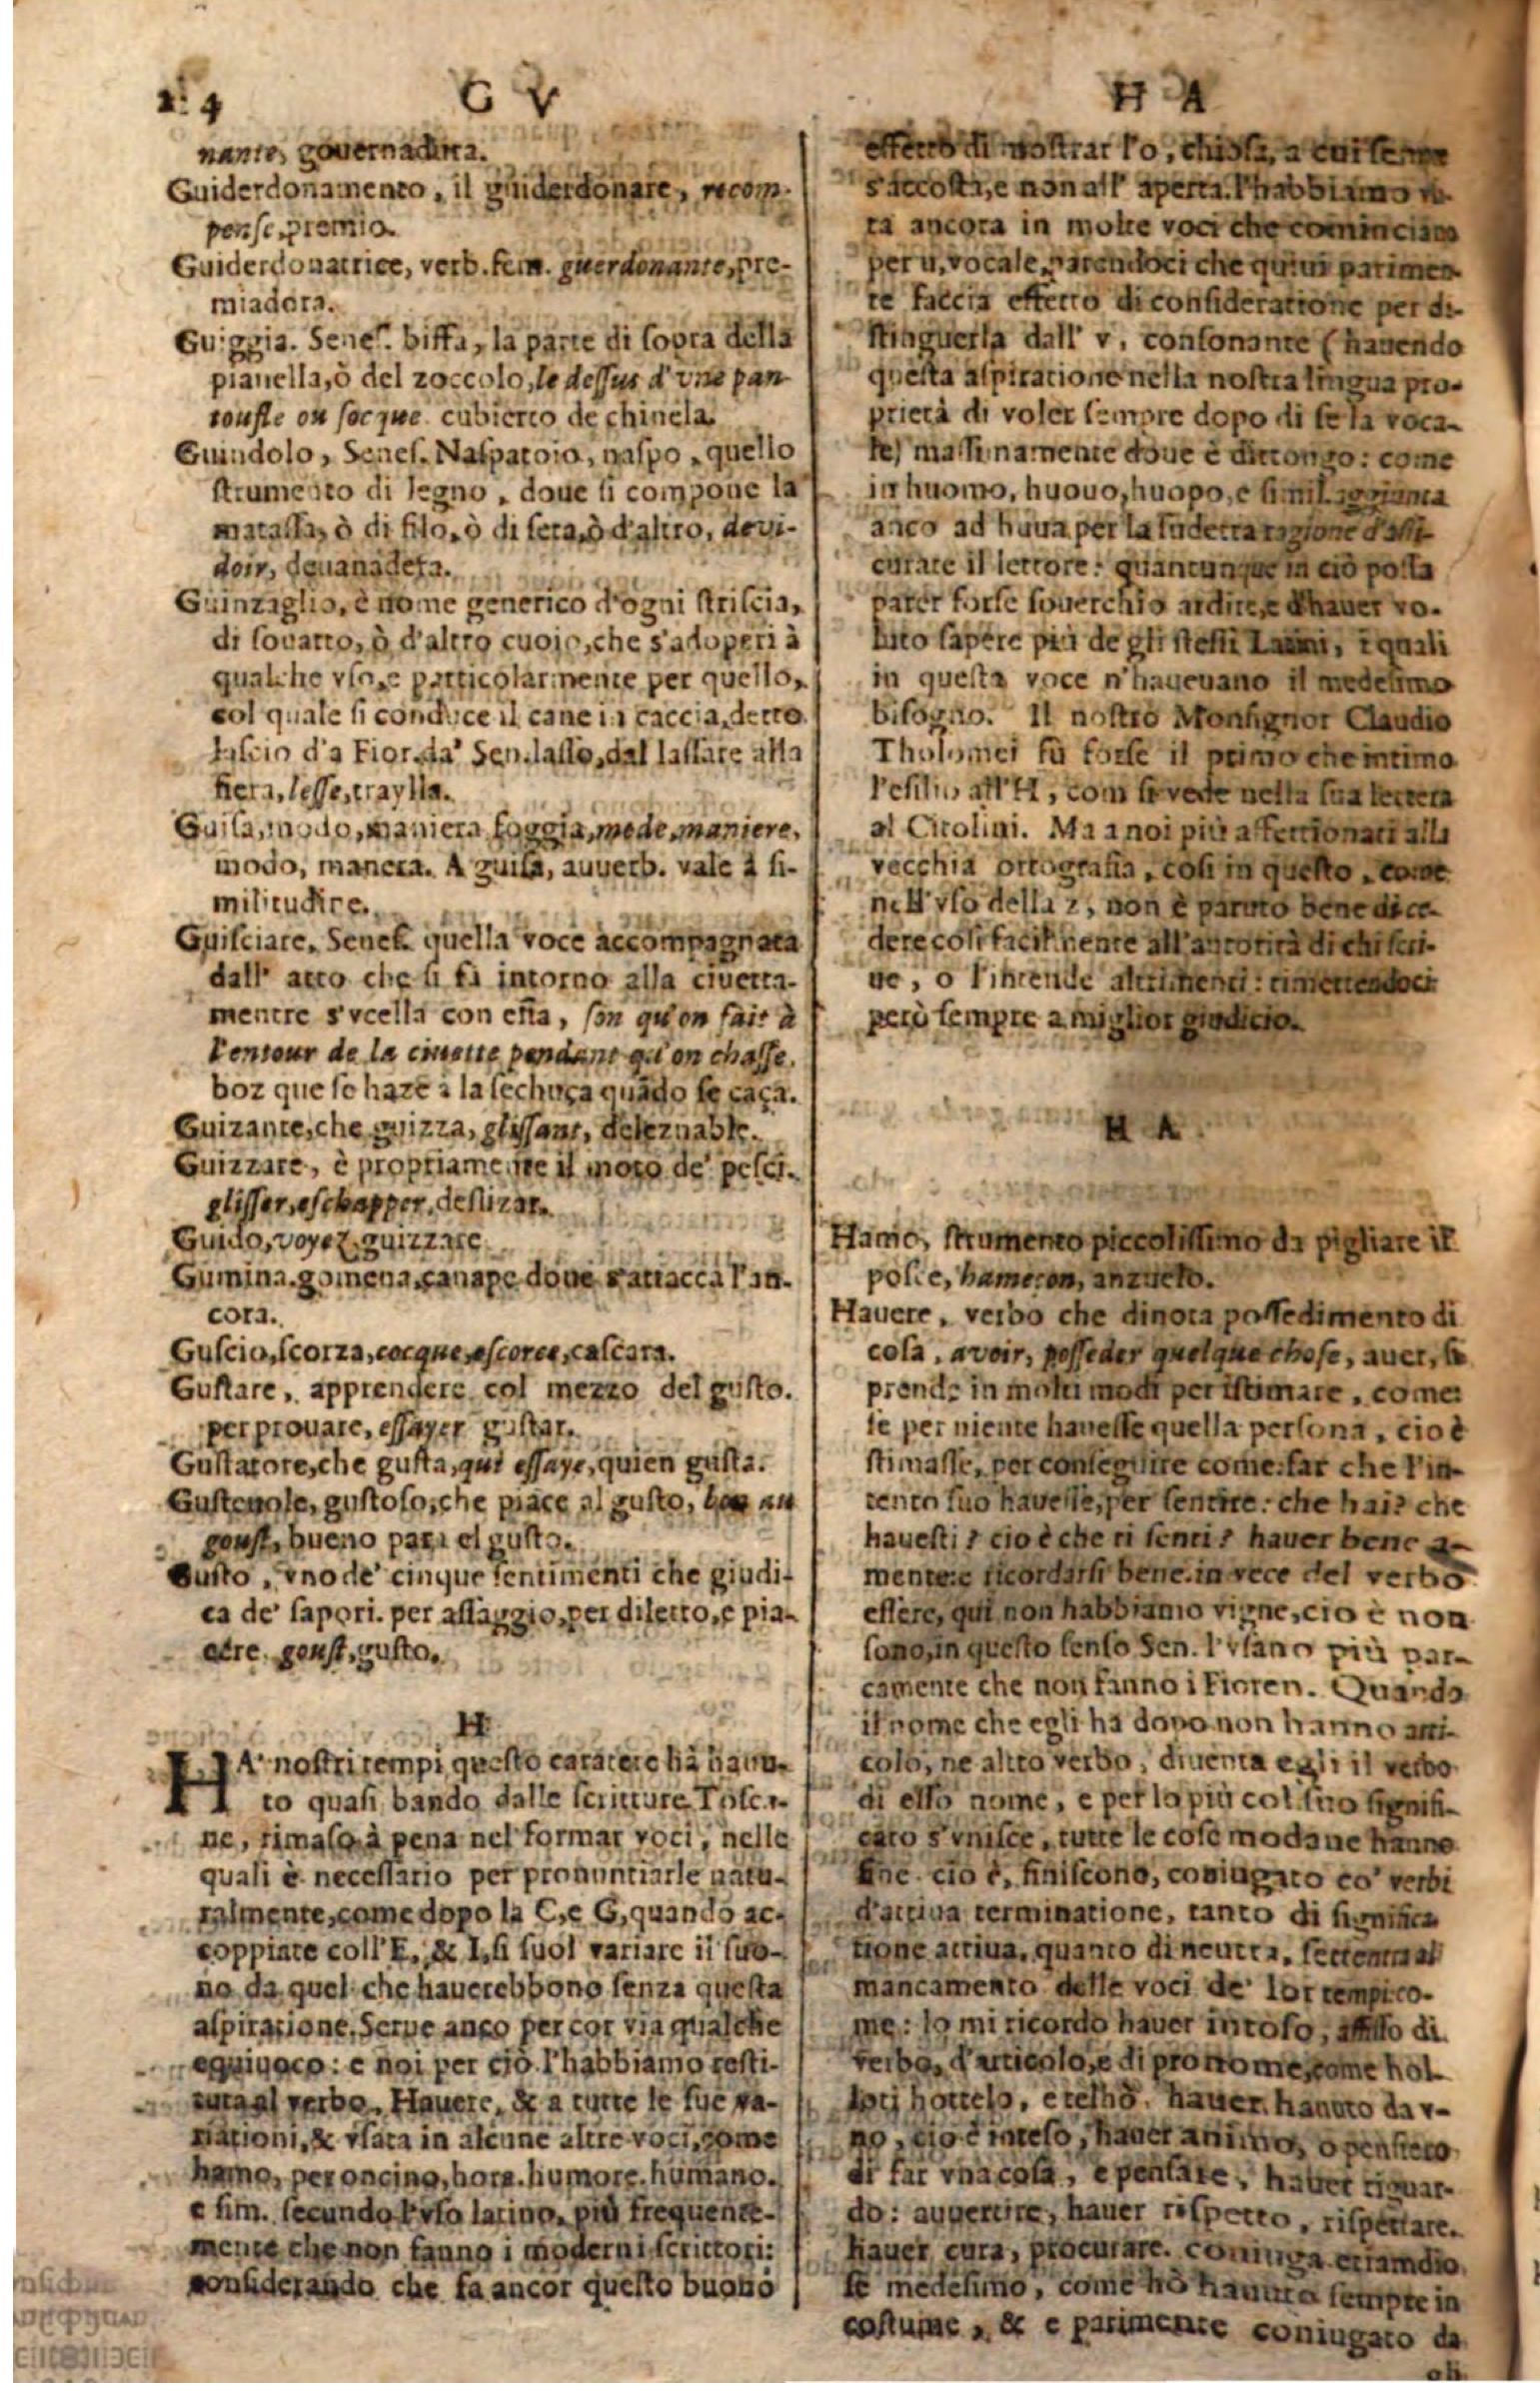 G V
nante, gouernadora.
Guiderdonamento, il guiderdonare, recom-
pense, premio.
Guiderdonatrice, verb. fem. guerdonante, pre-
miadora.
Guiggia. Senes. biffa, la parte di sopra della
pianella, ò del zoccolo, le dessus d'vne pan-
toufle ou socque. cubierto de chinela.
Guindolo, Senes. Naspatoio, naspo, quello
strumento di legno, doue si compone la
matassa, ò di filo, ò di seta, ò d'altro, devi-
doir, deuanadera.
Guinzaglio, è nome generico d'ogni striscia,
di souatto, ò d'altro cuoio, che s'adoperi à
qualche vso, e particolarmente per quello,
col quale si conduce il cane in caccia, detto
lascio d'a Fior. da' Sen. lasso, dal lassare alla
fiera, lesse, traylla.
Guisa, modo, maniera foggia, mode, maniere,
modo, manera. A guisa, auuerb. vale à si-
militudine.
Guisciare. Senes. quella voce accompagnata
dall' atto che si fà intorno alla ciuetta-
mentre s'vcella con essa, son qu'on fait à
l'entour de la ciuette pendant qu'on chasse.
boz que se haze à la lechuça quãdo se caça.
Guizante, che guizza, glissant, deleznable.
Guizzare, è propriamente il moto de' pesci.
glisser, eschapper, deslizar.
Guido, voyez guizzare
Gumina. gomena, canape doue s'attacca l'an-
cora.
Guscio, scorza, cocque, escorce, cascara.
Gustare, apprendere col mezzo del gusto.
per prouare, essayer gustar.
Gustatore, che gusta, qui essaye, quien gusta.
Gusteuole, gustoso, che piace al gusto, bon au
goust, bueno para el gusto.
Gusto, vno de' cinque sentimenti che giudi-
ca de' sapori. per assaggio, per diletto, e pia-
cere. goust, gusto.
H
HA' nostri tempi questo caratere hà hauu-
to quasi bando dalle scritture Tosca-
ne, rimaso à pena nel formar voci, nelle
quali è necessario per pronuntiarle natu-
ralmente, come dopo la C, e G, quando ac-
coppiate coll'E, & I, si suol variare il suo-
no da quel che hauerebbono senza questa
aspiratione. Serue anco per tor via qualche
equiuoco: e noi per ciò l'habbiamo resti-
tuta al verbo, Hauere, & a tutte le sue va-
riationi, & vsata in alcune altre voci, come
hamo, per oncino, hora. humore. humano.
e sim. secundo l'vso latino, più frequente-
mente che non fanno i moderni scrittori:
considerando che fa ancor questo buono
H A
effetto di mostrar l'o, chiosa, a cui sempre
s'accosta, e non all' aperta. l'habbiamo vsa-
ta ancora in molte voci che cominciano
per u, vocale, parendoci che quiui parimen-
te faccia effetto di consideratione per di-
stinguerla dall' v, consonante (hauendo
questa aspiratione nella nostra lingua pro-
prietà di voler sempre dopo di se la voca-
le) massimamente doue è dittongo: come
in huomo, huouo, huopo, e simil. aggiunta
anco ad huua per la sudetta ragione d'assi-
curare il lettore: quantunque in ciò possa
parer forse souerchio ardire, e d'hauer vo-
luto sapere più de gli stessi Latini, i quali
in questa voce n'haueuano il medesimo
bisogno. Il nostro Monsignor Claudio
Tholomei fù forse il primo che intimo
l'esilio all'H, com si vede nella sua lettera
al Citolini. Ma a noi più affettionati alla
vecchia ortografia, cosi in questo, come
nell'vso della z, non è paruto bene di ce-
dere cosi facilmente all'autorità di chi scri-
ue, o l'intende altrimenti: rimettendoci
però sempre a miglior giudicio.
H A
Hamo, strumento piccolissimo da pigliare il
pesce, hameçon, anzuelo.
Hauere, verbo che dinota possedimento di
cosa, avoir, posseder quelque chose, auer, si
prende in molti modi per istimare, come:
se per niente hauesse quella persona, cio è
stimasse, per conseguire come: far che l'in-
tento suo hauesse, per sentire: che hai? che
havesti? cio è che ti senti? hauer bene a-
mente: e ricordarsi bene. in vece del verbo
essere, qui non habbiamo vigne, cio è non
sono, in questo senso Sen. l'vsano più par-
camente che non fanno i Fioren. Quando
il nome che egli ha dopo non hanno arti-
colo, ne altro verbo, diuenta egli il verbo
di esso nome, e per lo più col suo signifi-
cato s'vnisce, tutte le cose modane hanno
fine cio è, finiscono, coniugato co' verbi
d'attiua terminatione, tanto di significa
tione attiua, quanto di neutra, settentra al
mancamento delle voci de' lor tempi co-
me: Io mi ricordo hauer intoso, affisso di
verbo, d'articolo, e di pronome, come hol-
loti hottelo, e telhò. hauer hauuto da v-
no, cio è inteso, hauer animo, o pensiero
di far vna cosa, e pensare, hauer riguar-
do: auuertire, hauer rispetto, rispettare.
hauer cura, procurare. coniuga etiamdio
se medesimo, come hò hauuto sempre in
costume, & e parimente coniugato da